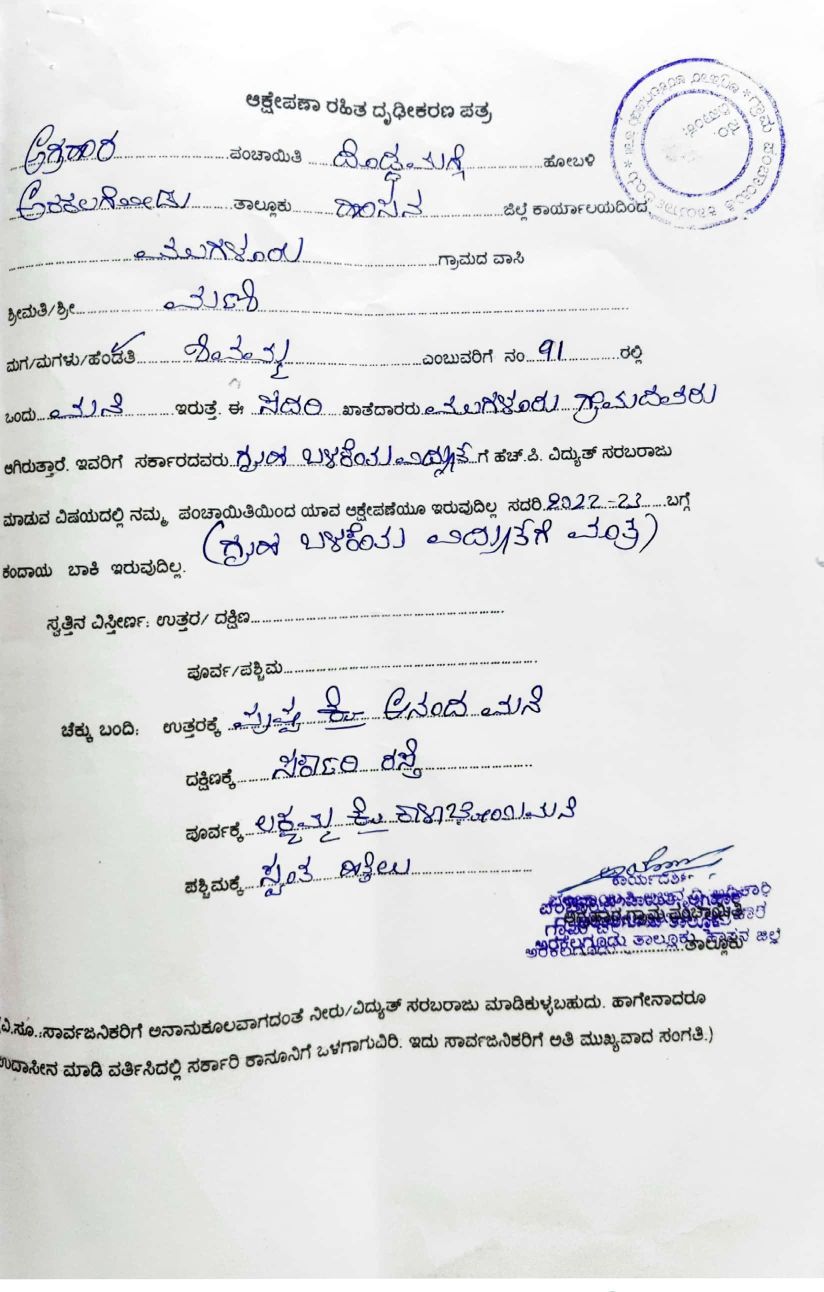 ಆಕ್ಷೇಪಣಾ ರಹಿತ ದೃಢೀಕರಣ ಪತ್ರ
ಅಗ್ರಹಾರ ಪಂಚಾಯಿತಿ ದೊಡ್ಡಮಗ್ಗೆ ಹೋಬಳಿ
ಅರಕಲಗೋಡು ತಾಲ್ಲೂಕು ಹಾಸನ ಜಿಲ್ಲೆ ಕಾರ್ಯಾಲಯದಿಂದ
ಗ್ರಾಮದ ವಾಸಿ
ಶ್ರೀಮತಿ/ಶ್ರೀ ಮಣಿ
ಮಗ/ಮಗಳು/ಹೆಂಡತಿ ಎಂಬುವರಿಗೆ ನಂ 91 ರಲ್ಲಿ
ಒಂದು ಮನೆ ಇರುತ್ತೆ. ಈ ಸದರಿ ಖಾತೆದಾರರು
ಆಗಿರುತ್ತಾರೆ. ಇವರಿಗೆ ಸರ್ಕಾರದವರು ಗೃಹ ಬಳಕೆಯ ಗೆ ಹೆಚ್.ಪಿ. ವಿದ್ಯುತ್ ಸರಬರಾಜು
ಮಾಡುವ ವಿಷಯದಲ್ಲಿ ನಮ್ಮ ಪಂಚಾಯಿತಿಯಿಂದ ಯಾವ ಆಕ್ಷೇಪಣೆಯೂ ಇರುವುದಿಲ್ಲ ಸದರಿ 2022-23 ಬಗ್ಗೆ
(ಗೃಹ ಬಳಕೆಯ ವಿದ್ಯುತಿಗೆ ಮಾತ್ರ)
ಕಂದಾಯ ಬಾಕಿ ಇರುವುದಿಲ್ಲ.
ಸ್ವತ್ತಿನ ವಿಸ್ತೀರ್ಣ: ಉತ್ತರ/ ದಕ್ಷಿಣ
ಪೂರ್ವ/ಪಶ್ಚಿಮ
ಚೆಕ್ಕು ಬಂದಿ: ಉತ್ತರಕ್ಕೆ ಪುಷ್ಪ ಕೋಂ ಆನಂದ ಮನೆ
ದಕ್ಷಿಣಕ್ಕೆ ಸರ್ಕಾರಿ ರಸ್ತೆ
ಪೂರ್ವಕ್ಕೆ ಲಕ್ಷ್ಮಮ್ಮ ಕೋಂ ಕಾಳಾಬೋಯಿ ಮನೆ
ಪಶ್ಚಿಮಕ್ಕೆ ಸ್ವಂತ ಹಿತ್ತಲು
ಕಾರ್ಯದರ್ಶಿ
ಅಗ್ರಹಾರ ಗ್ರಾಮ ಪಂಚಾಯಿತಿ
ಅರಕಲಗೂಡು ತಾಲ್ಲೂಕು, ಹಾಸನ ಜಿಲ್ಲೆ
ತಾಲ್ಲೂಕು
(ವಿ.ಸೂ.:ಸಾರ್ವಜನಿಕರಿಗೆ ಅನಾನುಕೂಲವಾಗದಂತೆ ನೀರು/ವಿದ್ಯುತ್ ಸರಬರಾಜು ಮಾಡಿಕುಳ್ಳಬಹುದು. ಹಾಗೇನಾದರೂ
ಉದಾಸೀನ ಮಾಡಿ ವರ್ತಿಸಿದಲ್ಲಿ ಸರ್ಕಾರಿ ಕಾನೂನಿಗೆ ಒಳಗಾಗುವಿರಿ. ಇದು ಸಾರ್ವಜನಿಕರಿಗೆ ಅತಿ ಮುಖ್ಯವಾದ ಸಂಗತಿ.)